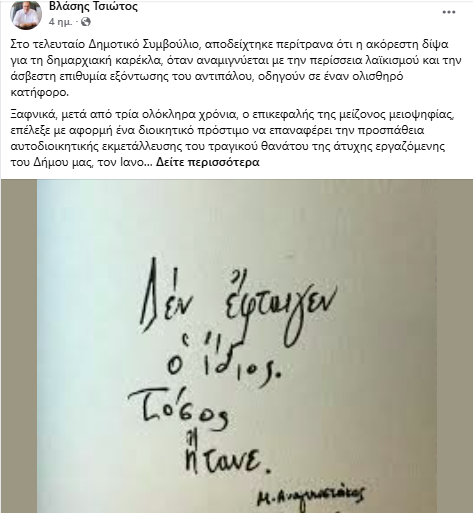 Βλάσης Τσιώτος
4 ημ. ·
Στο τελευταίο Δημοτικό Συμβούλιο, αποδείχτηκε περίτρανα ότι η ακόρεστη δίψα
για τη δημαρχιακή καρέκλα, όταν αναμιγνύεται με την περίσσεια λαϊκισμού και την
άσβεστη επιθυμία εξόντωσης του αντιπάλου, οδηγούν σε έναν ολισθηρό
κατήφορο.
Ξαφνικά, μετά από τρία ολόκληρα χρόνια, ο επικεφαλής της μείζονος μειοψηφίας,
επέλεξε με αφορμή ένα διοικητικό πρόστιμο να επαναφέρει την προσπάθεια
αυτοδιοικητικής εκμετάλλευσης του τραγικού θανάτου της άτυχης εργαζόμενης
του Δήμου μας, τον Ιανο... Δείτε περισσότερα
Δέν ἔφταιγεν
ὁ ἴδιος.
Τόσος
ἤτανε.
Μ. Αναγνωστάκης